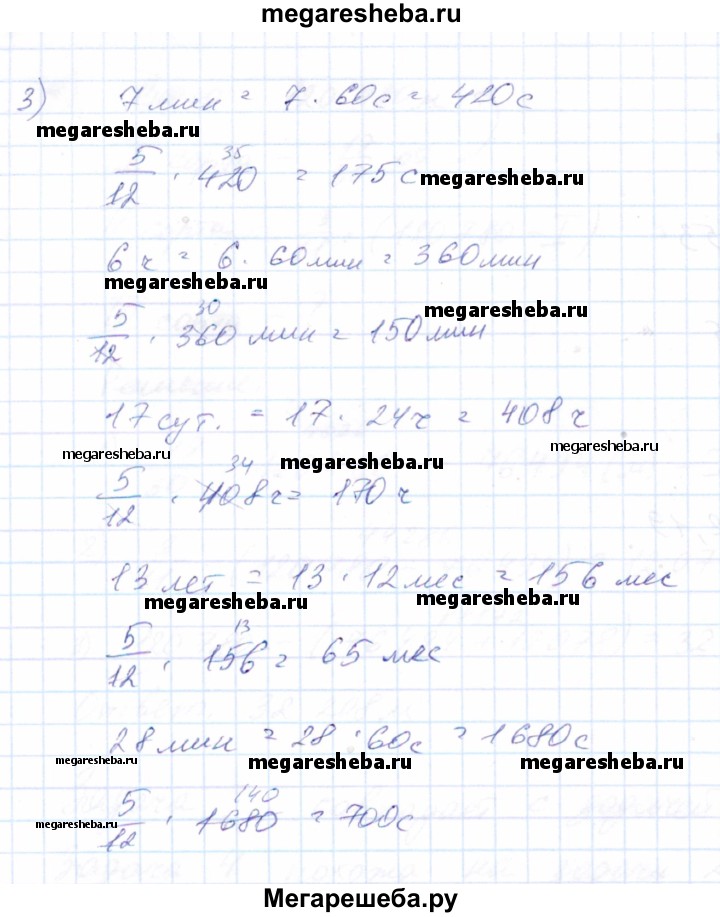 megaresheba.ru
3) 7 мин = 7 · 60с = 420с
megaresheba.ru
35
5/12 · 420 = 175 с megaresheba.ru
6 ч = 6 · 60мин = 360мин
megaresheba.ru megaresheba.ru
30
5/12 · 360 мин = 150мин
17 сут. = 17 · 24ч = 408 ч
megaresheba.ru megaresheba.ru megaresheba.ru
34
5/12 · 408ч = 170 ч
13 лет = 13 · 12мес = 156 мес
megaresheba.ru megaresheba.ru
13
5/12 · 156 = 65 мес
28 мин = 28 · 60с = 1680с
megaresheba.ru megaresheba.ru megaresheba.ru
140
5/12 · 1680 = 700с
megaresheba.ru
Мегарешеба.ру